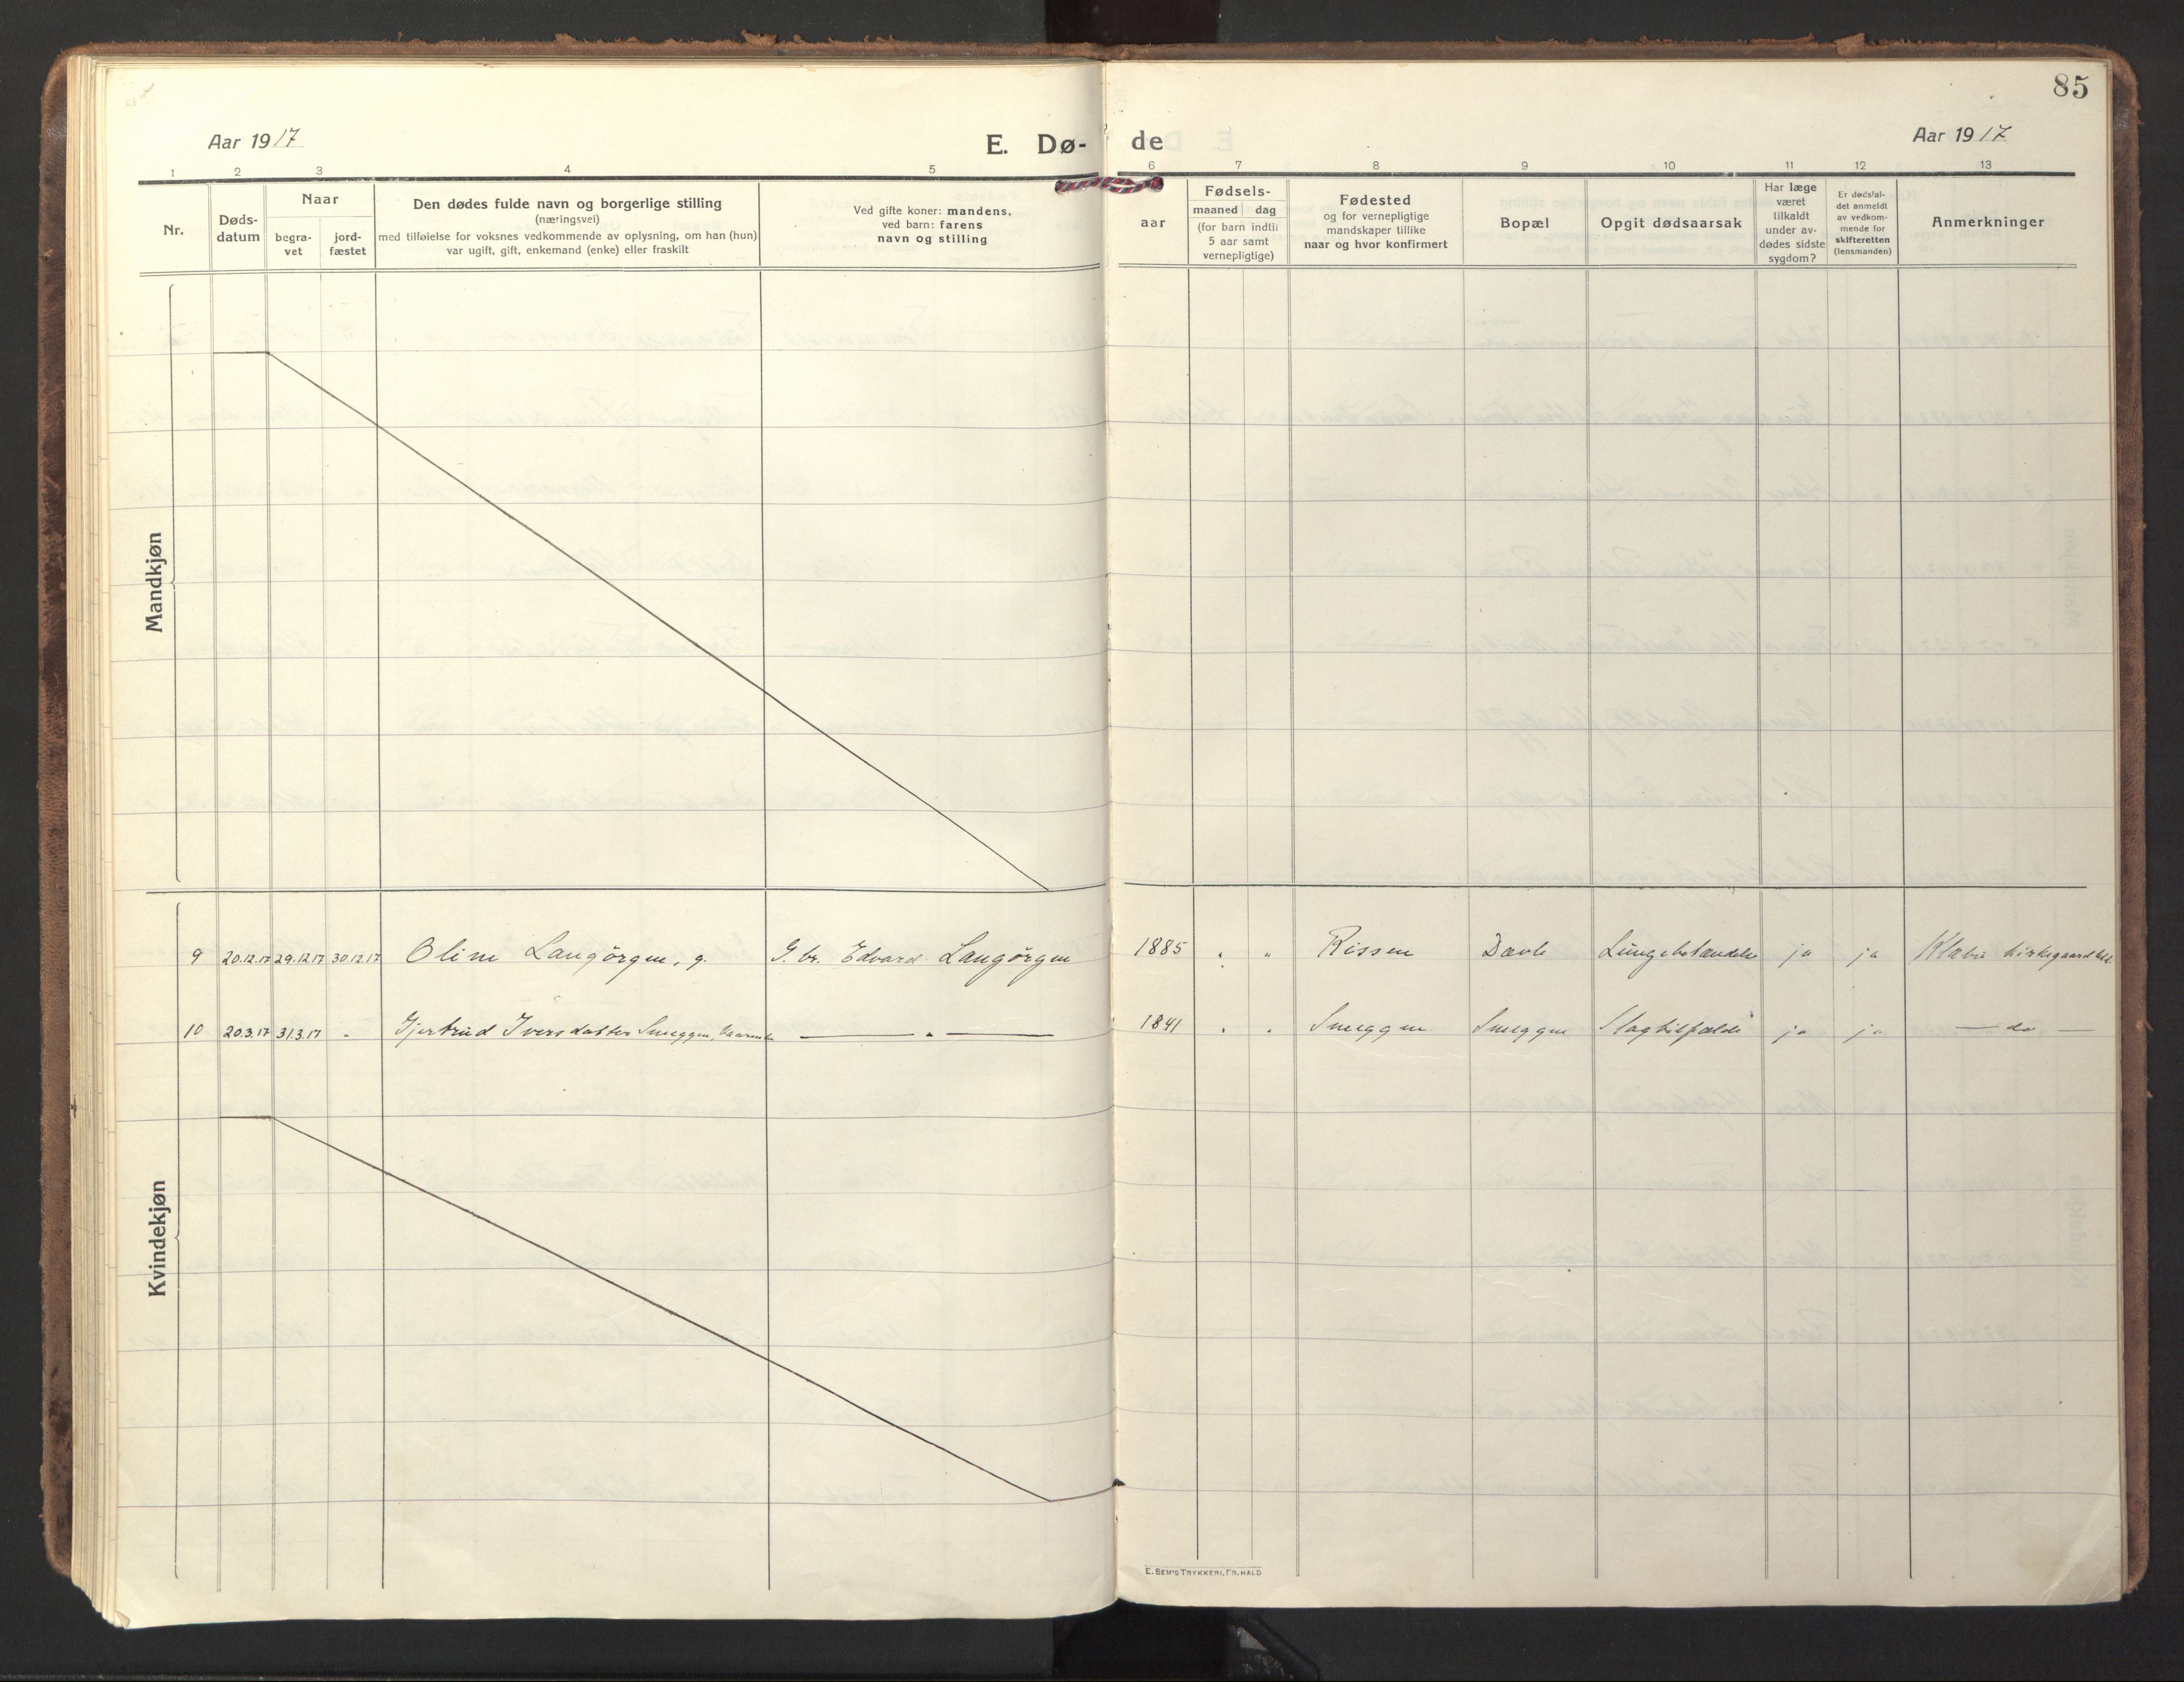 85
Aar 1917
E. Dø-
de
Aar 1917
1 2 3 4 5 6 7 8 9 10 11 12 13
Nr.
Døds-
datum
Naar
begra-
vet
jord-
fæstet
Den dødes fulde navn og borgerlige stilling
(næringsvei)
med tilføielse for voksnes vedkommende av oplysning, om han (hun)
var ugift, gift, enkemand (enke) eller fraskilt
Ved gifte koner: mandens,
ved barn: farens
navn og stilling
aar
Fødsels-
maaned dag
(for barn indtil
5 aar samt
vernepligtige)
Fødested
og for vernepligtige
mandskaper tillike
naar og hvor konfirmert
Bopæl
Opgit dødsaarsak
Har læge
været
tilkaldt
under av-
dødes sidste
sygdom?
Er dødsfal-
det anmeldt
av vedkom-
mende for
skifteretten
(lensmanden)
Anmerkninger
Mandkjøn
9 20.12.17 29.12.17 30.12.17 Oline Langörgen, g. G. br. Edvard Langörgen 1885 " " Rissen Lungebetændelse ja ja Klæbu kirkegaard
10 20.3.17 31.3.17 " Gjertrud Iversdatter Sneggen, — " — 1841 " " Sneggen Sneggen Slagtilfælde ja ja — do —
Kvindekjøn
E. SEM'S TRYKKERI, FR.HALD